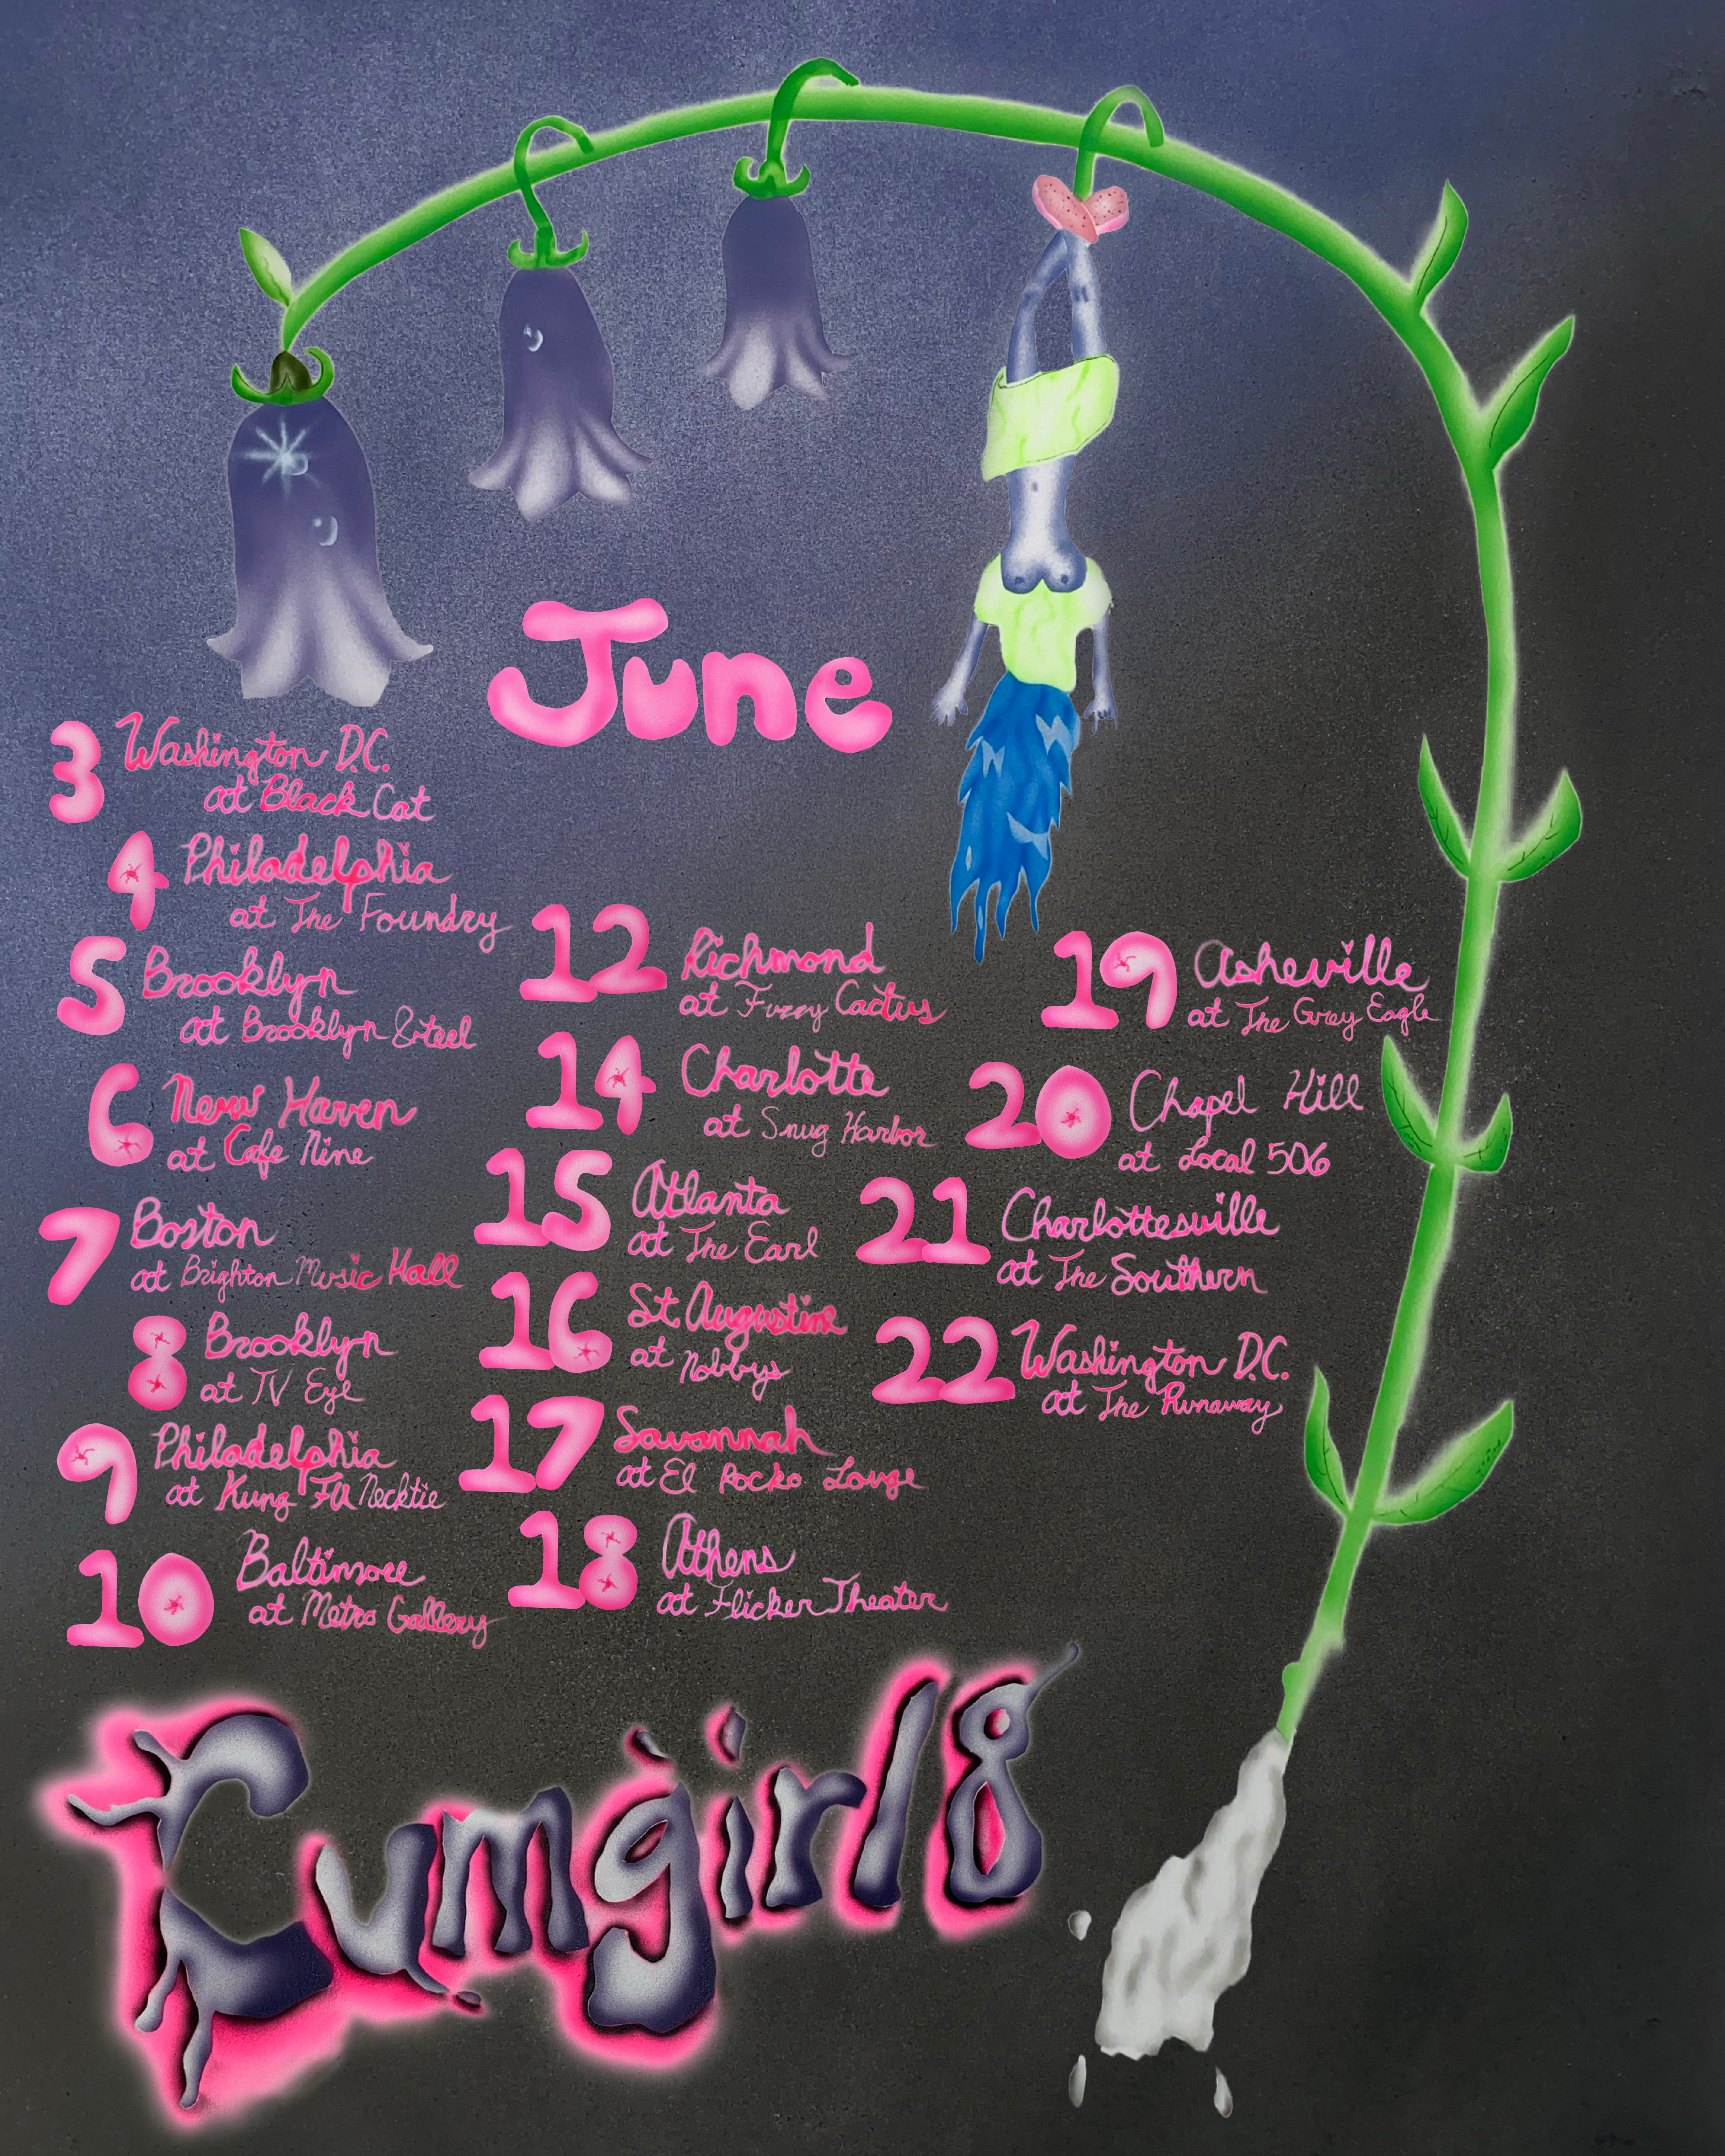 June
3 Washington D.C.
at Black Cat
4 Philadelphia
at The Foundry
5 Brooklyn
at Brooklyn Steel
6 New Haven
at Cafe Nine
7 Boston
at Brighton Music Hall
8 Brooklyn
at TV Eye
9 Philadelphia
at Kung Fu Necktie
10 Baltimore
at Metro Gallery
12 Richmond
at Fuzzy Cactus
14 Charlotte
at Snug Harbor
15 Atlanta
at The Earl
16 St Augustine
at Nobbys
17 Savannah
at El Rocko Louge
18 Athens
at Flicker Theater
19 Asheville
at The Grey Eagle
20 Chapel Hill
at Local 506
21 Charlottesville
at The Southern
22 Washington D.C.
at The Runaway
Cumgirl8